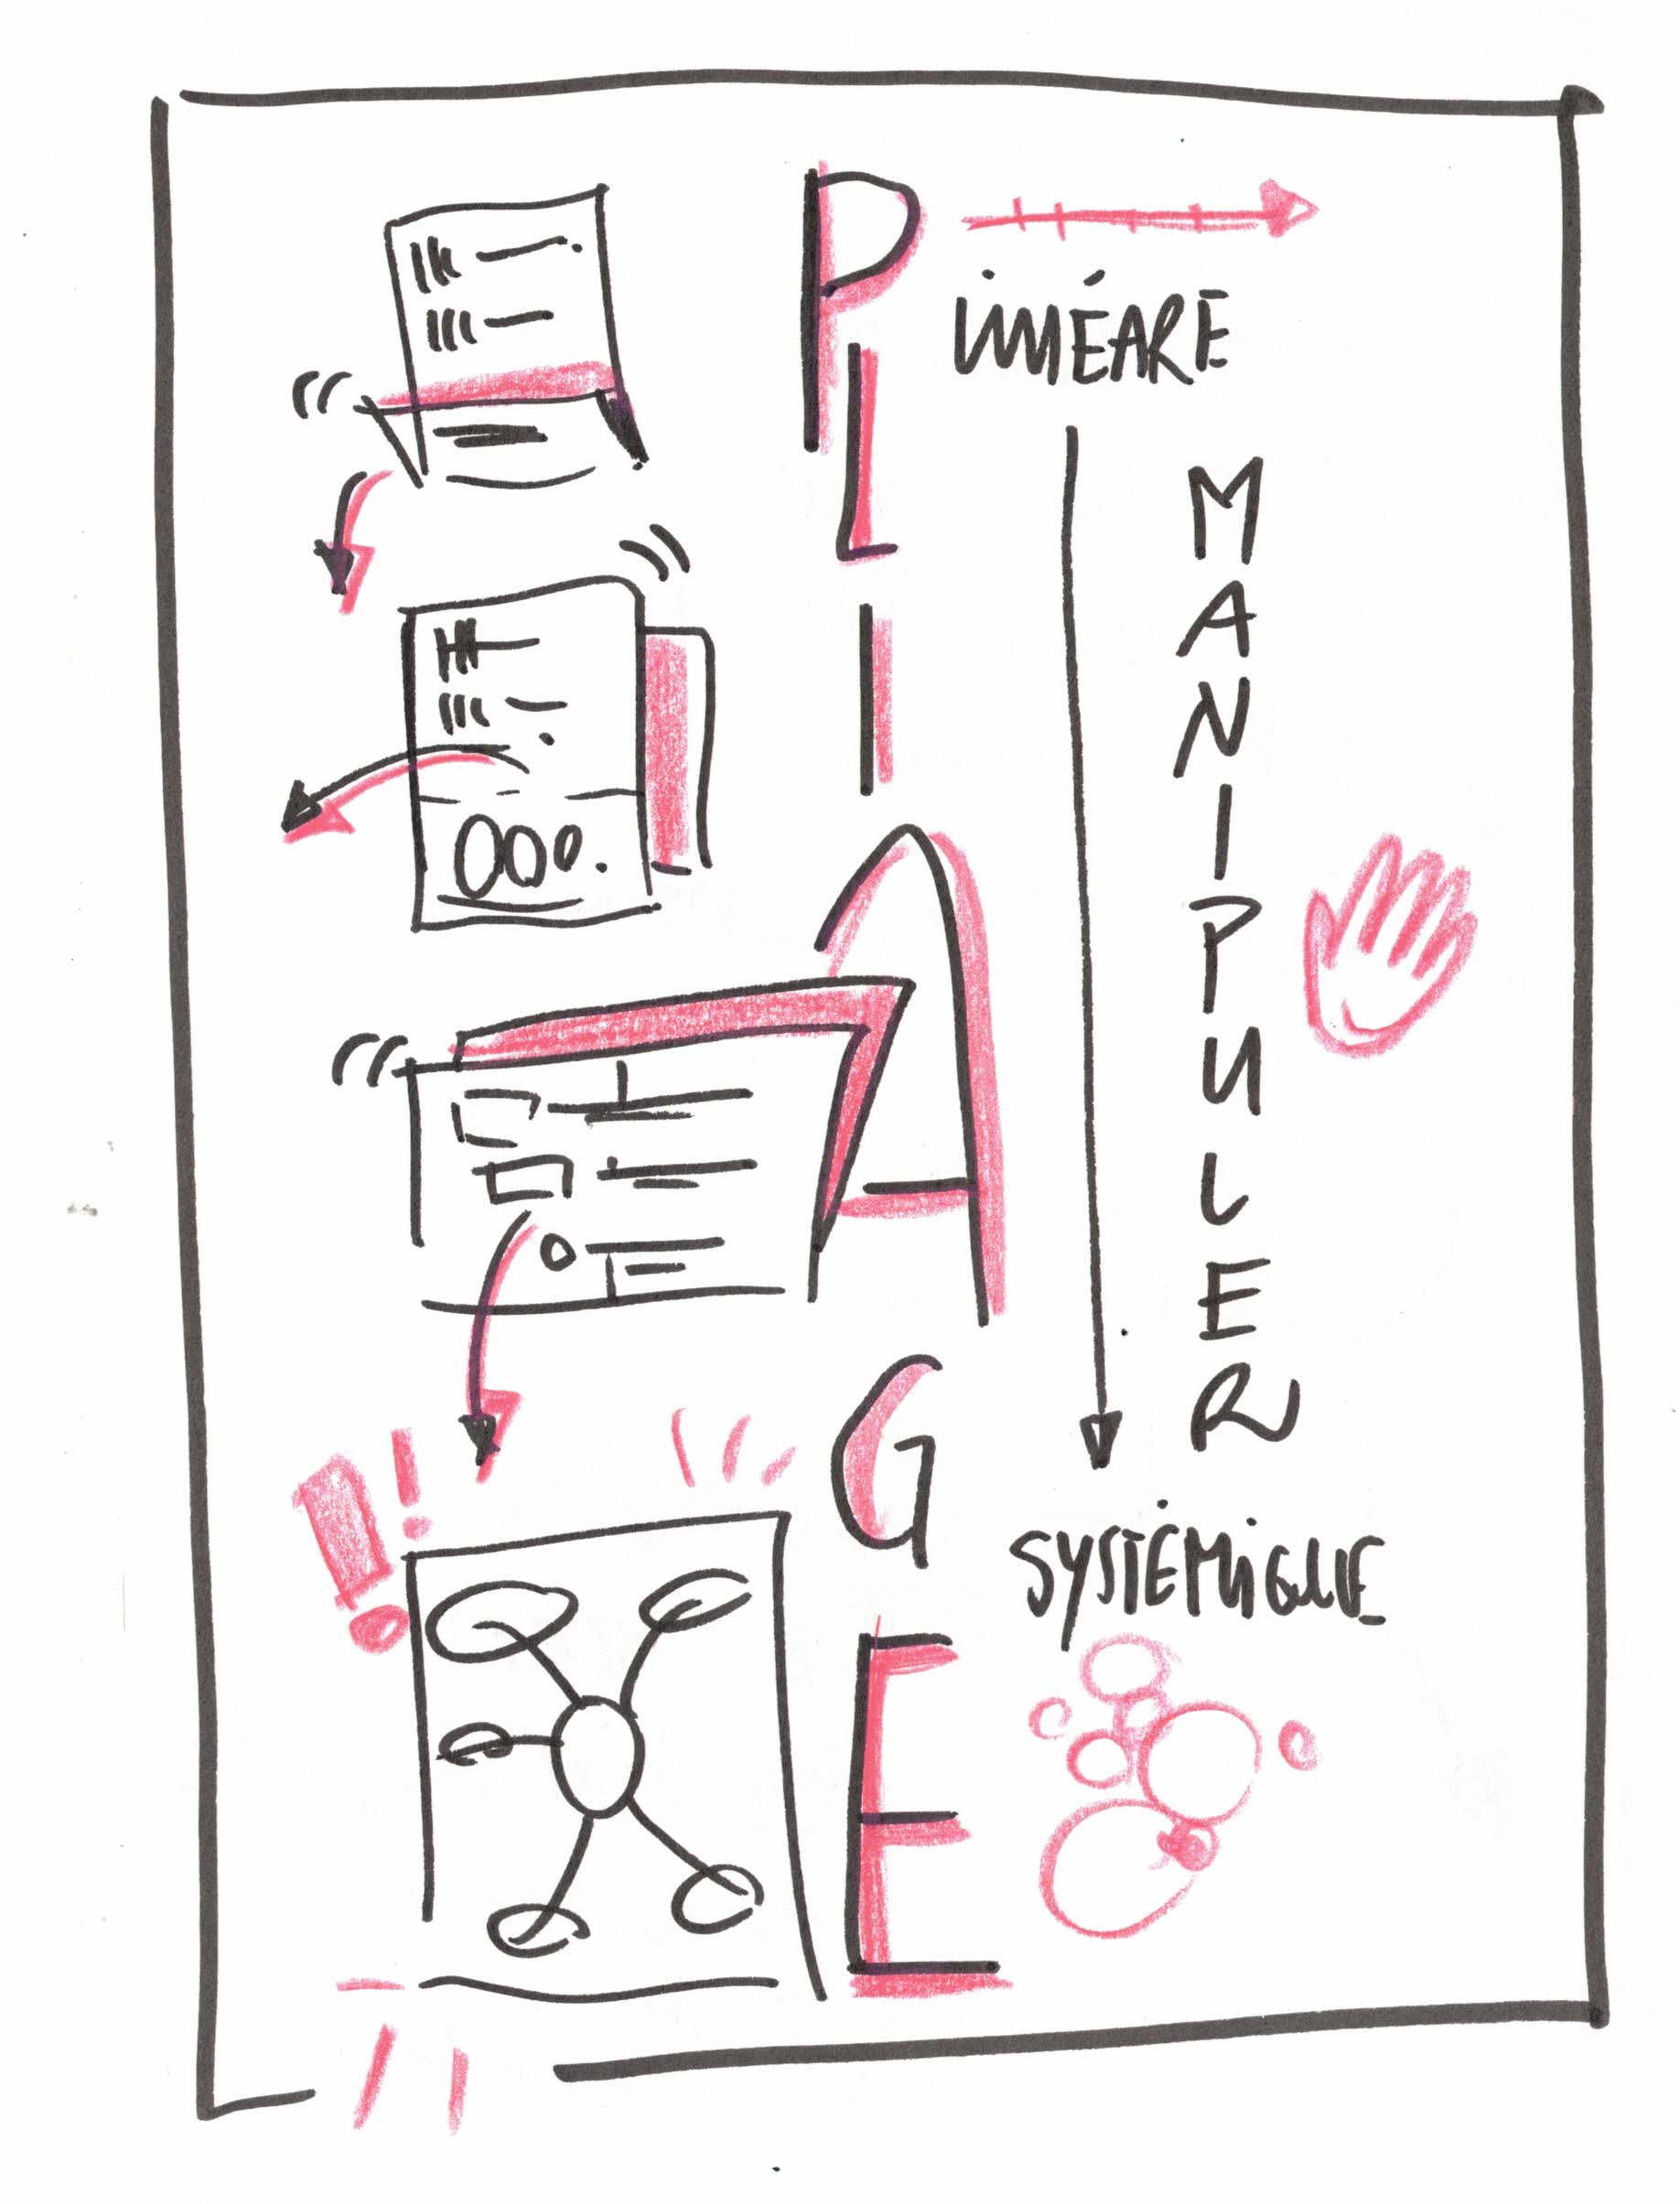 PLIAGE
LINÉARE
MANIPULER
SYSTÉMiQUE